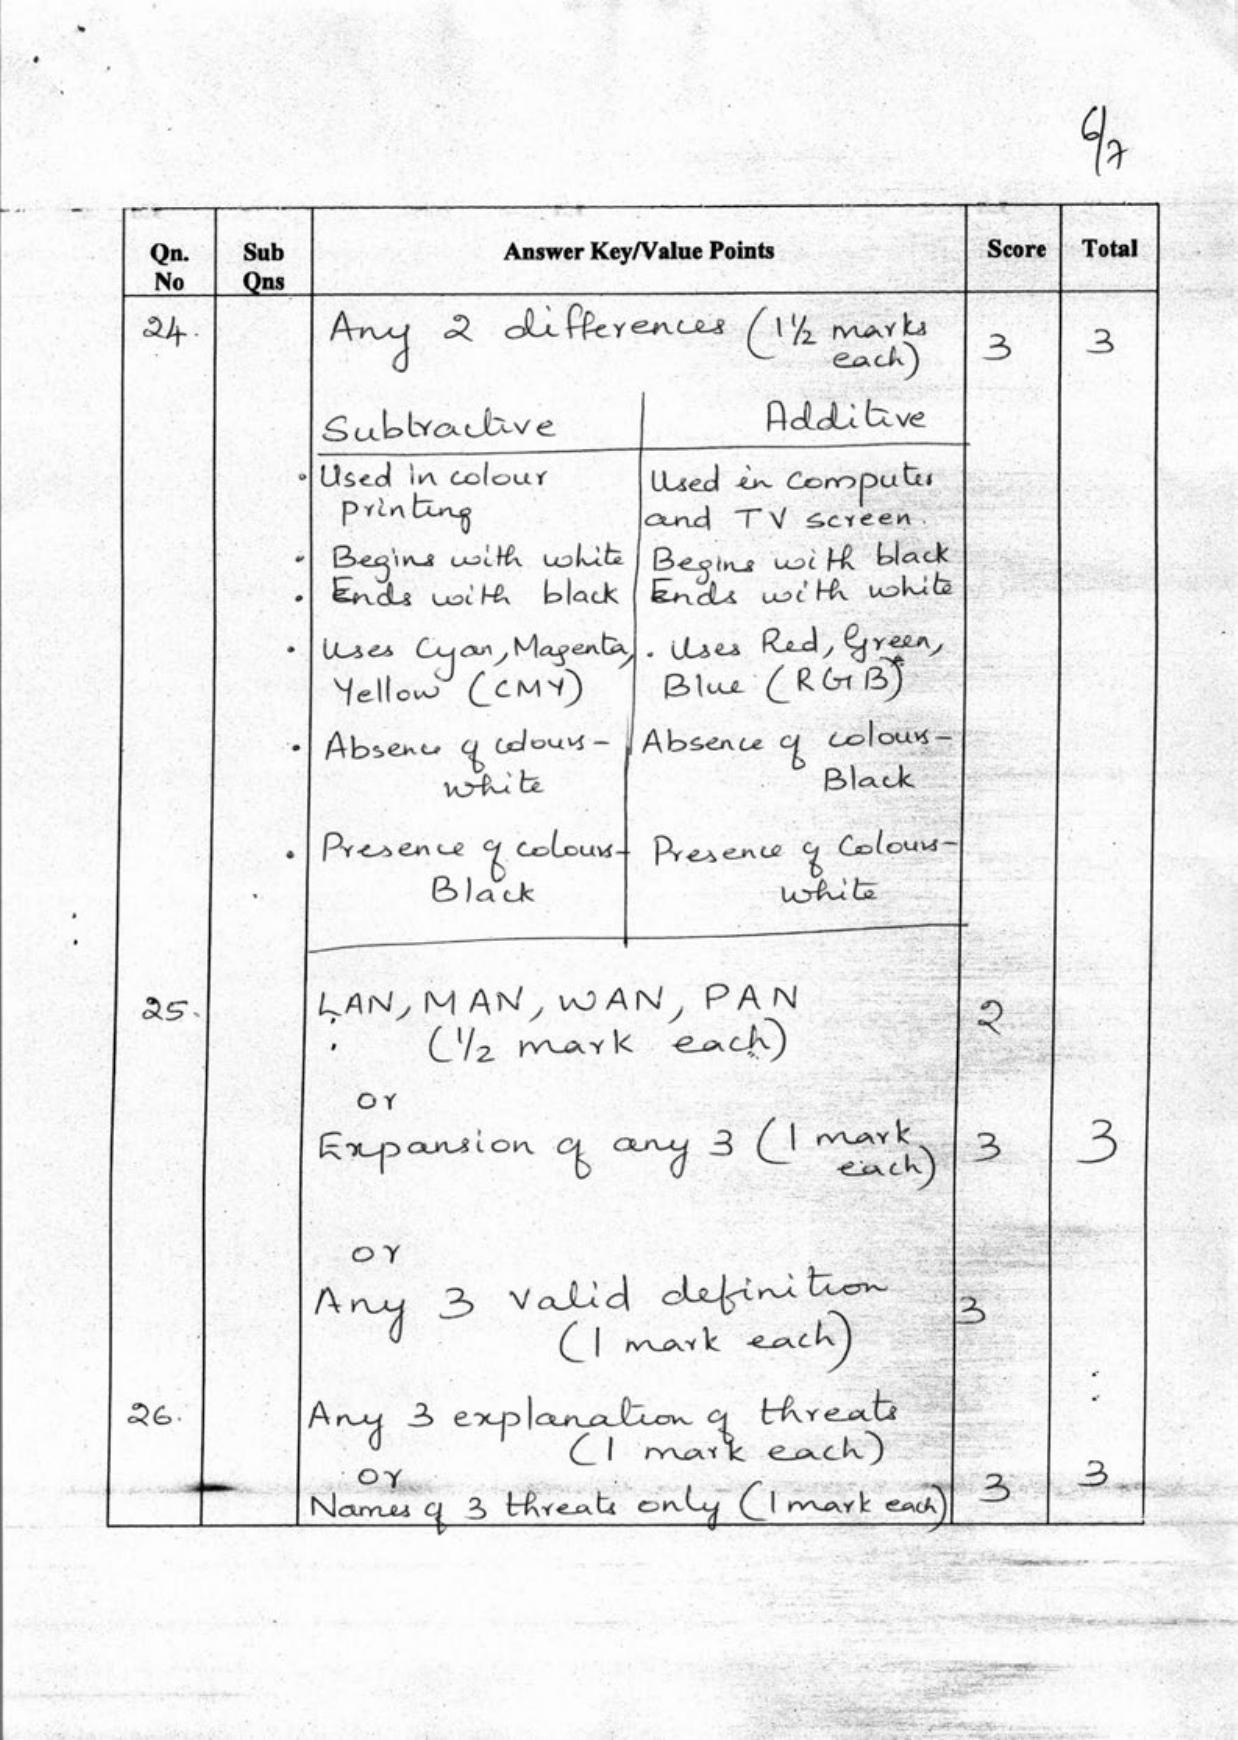 6/7
Qn. No
Sub Qns
Answer Key/Value Points
Score
Total
24.
Any 2 differences (1½ marks
each)
3
3
Subtractive
Additive
• Used in colour
printing
Used in Computer
and TV screen.
• Begins with white
Begins with black
• Ends with black
Ends with white
• Uses Cyan, Magenta,
Yellow (CMY)
• Uses Red, Green,
Blue (RGB)
• Absence of colours-
white
Absence of colours-
Black
• Presence of colours-
Black
Presence of Colours-
white
25.
LAN, MAN, WAN, PAN
(½ mark each)
2
or
Expansion of any 3 (1 mark
each)
3
3
or
Any 3 valid definition
(1 mark each)
3
26.
Any 3 explanation of threats
(1 mark each)
or
Names of 3 threats only (1 mark each)
3
3